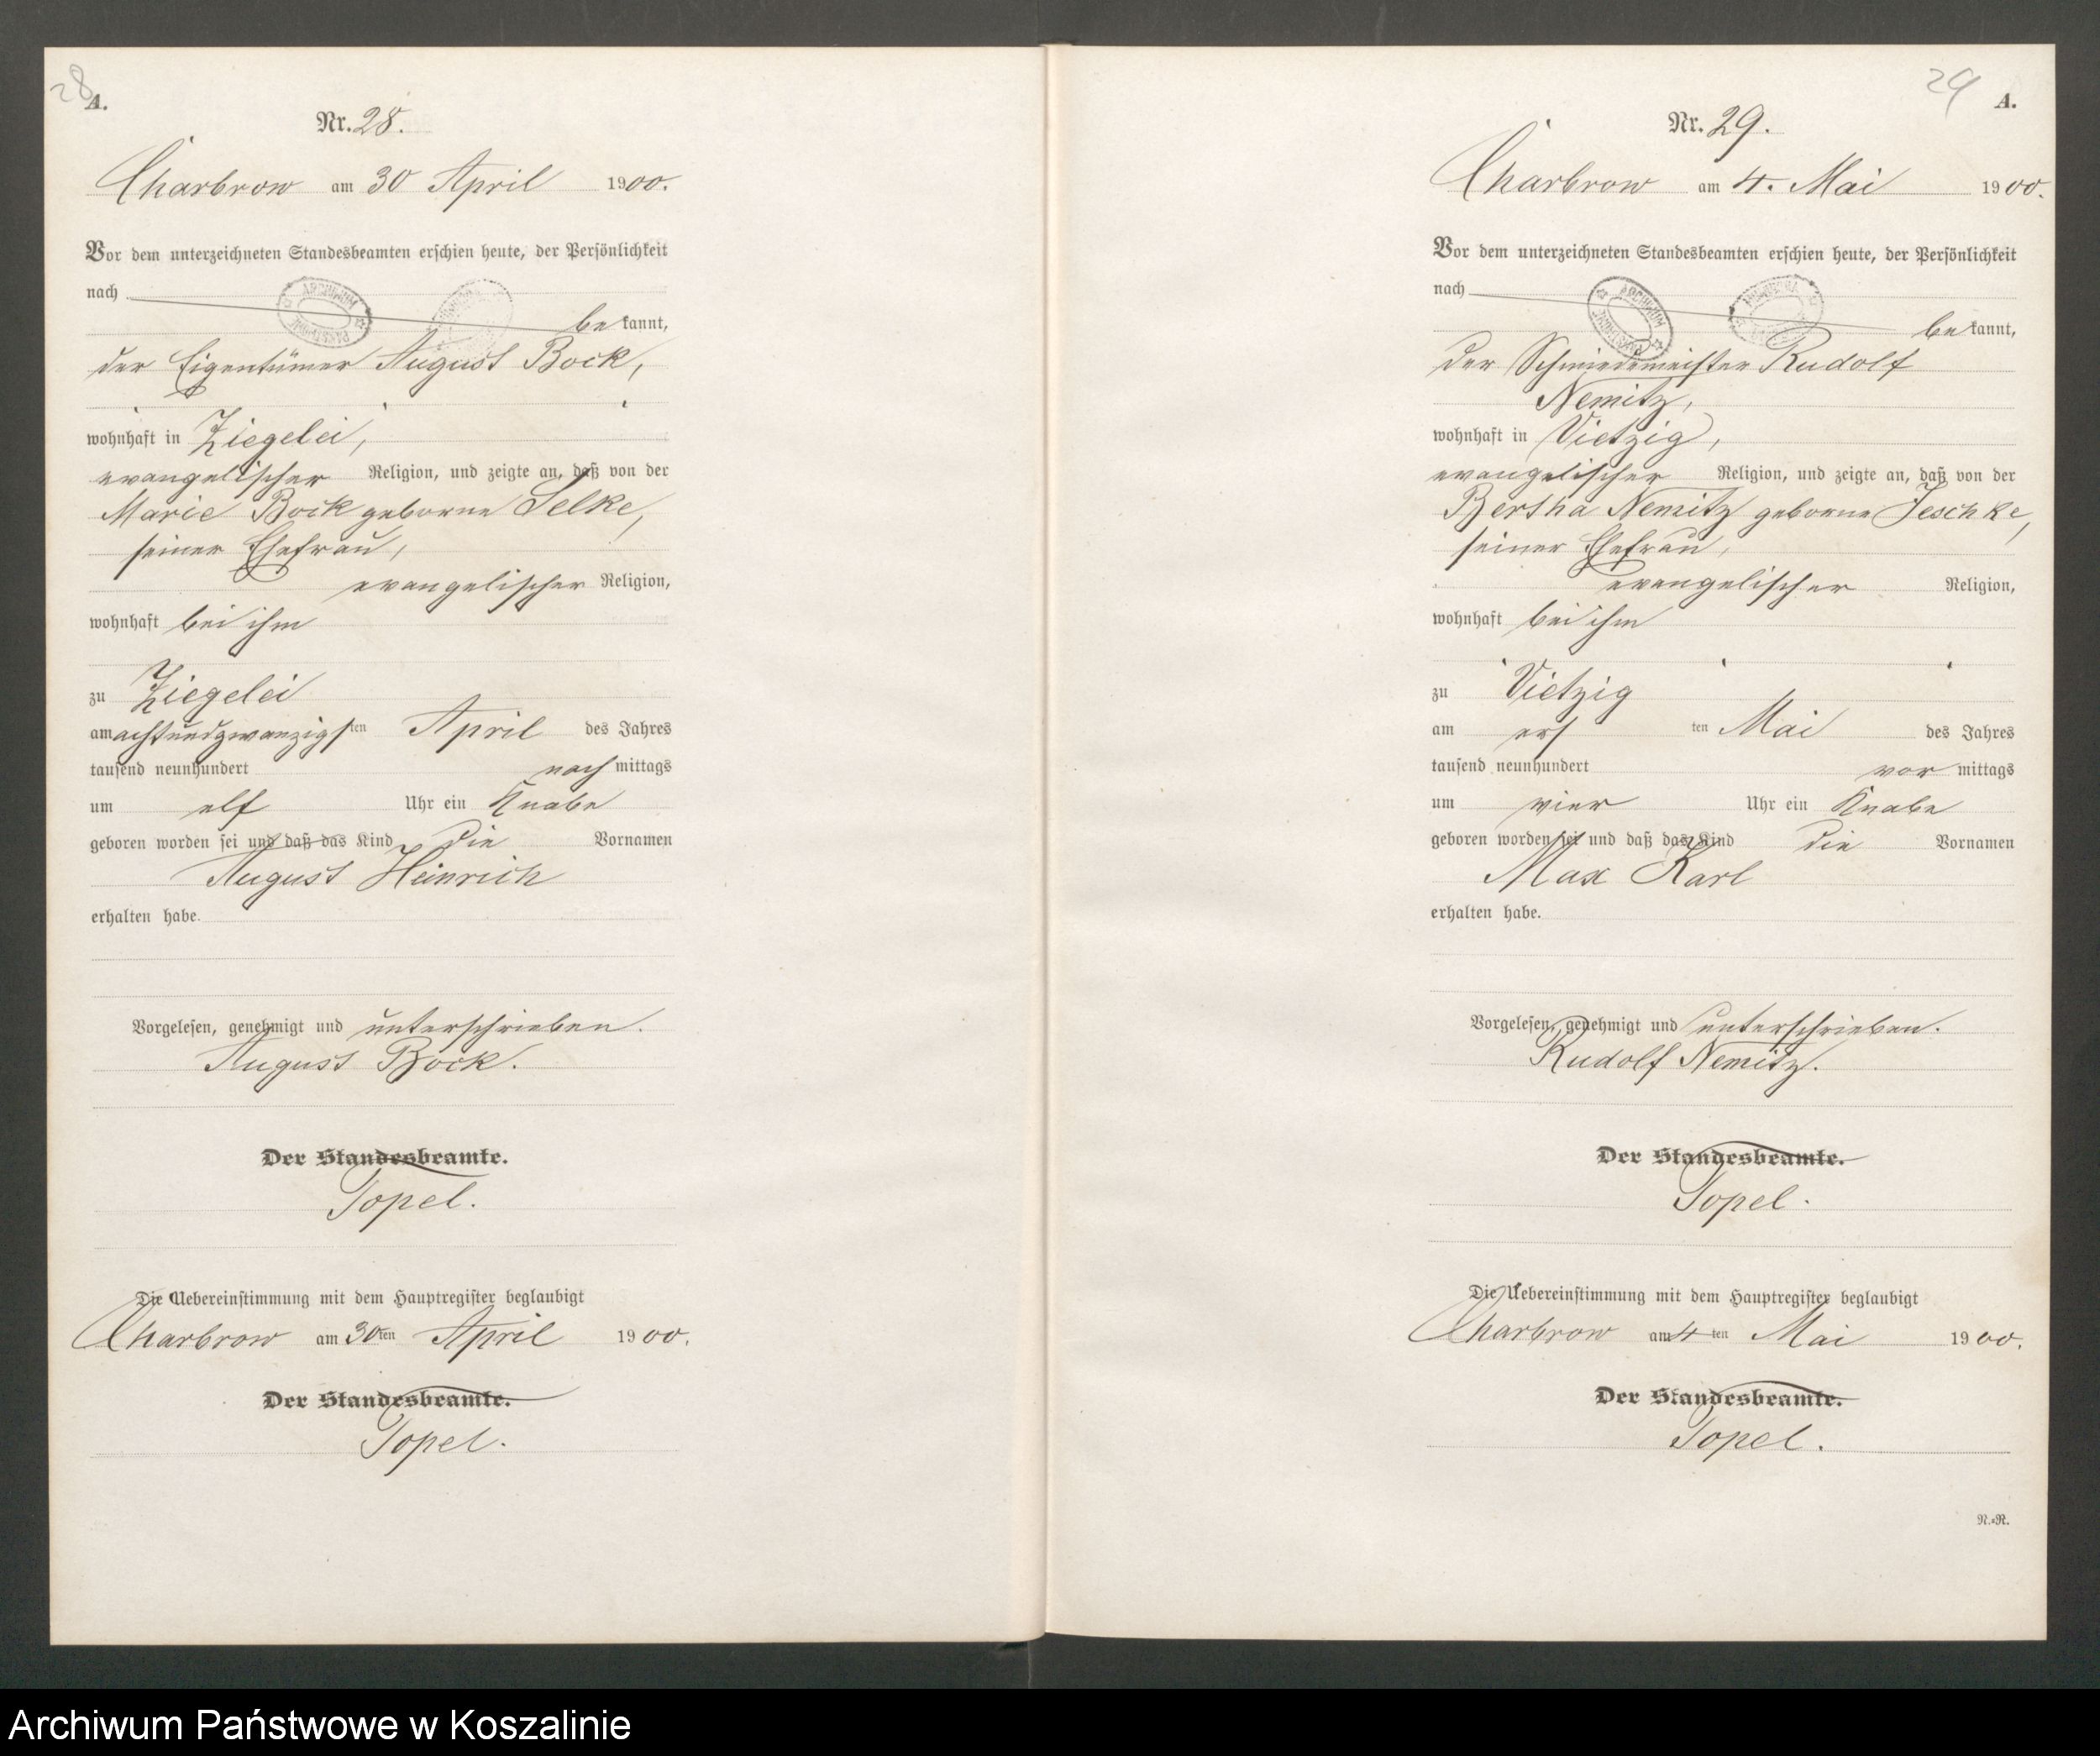 28
A.
Nr. 28.
Charbrow am 30 April 1900.
Vor dem unterzeichneten Standesbeamten erschien heute, der Persönlichkeit
nach
be kannt,
der Eigentümer August Bock,
wohnhaft in Ziegelei,
evangelischer Religion, und zeigte an, daß von der
Marie Bock geborne Selke,
seiner Ehefrau,
evangelischer Religion,
wohnhaft bei ihm
zu Ziegelei
am achtundzwanzigsten April des Jahres
tausend neunhundert nach mittags
um elf Uhr ein Knabe
geboren worden sei und daß das Kind die Vornamen
August Heinrich
erhalten habe.
Vorgelesen, genehmigt und unterschrieben.
August Bock.
Der Standesbeamte.
Topel.
Die Uebereinstimmung mit dem Hauptregister beglaubigt
Charbrow am 30ten April 1900.
Der Standesbeamte.
Topel.
29
A.
Nr. 29.
Charbrow am 4. Mai 1900.
Vor dem unterzeichneten Standesbeamten erschien heute, der Persönlichkeit
nach
ARCHIWUM
be kannt,
der Schmiedemeister Rudolf
Nemitz,
wohnhaft in Vietzig,
evangelischer Religion, und zeigte an, daß von der
Bertha Nemitz geborne Jeschke,
seiner Ehefrau,
evangelischer Religion,
wohnhaft bei ihm
zu Vietzig
am ersten Mai des Jahres
tausend neunhundert vor mittags
um vier Uhr ein Knabe
geboren worden sei und daß das Kind die Vornamen
Max Karl
erhalten habe.
Vorgelesen, genehmigt und unterschrieben.
Rudolf Nemitz.
Der Standesbeamte.
Topel.
Die Uebereinstimmung mit dem Hauptregister beglaubigt
Charbrow am 4ten Mai 1900.
Der Standesbeamte.
Topel.
N.=R.
Archiwum Państwowe w Koszalinie